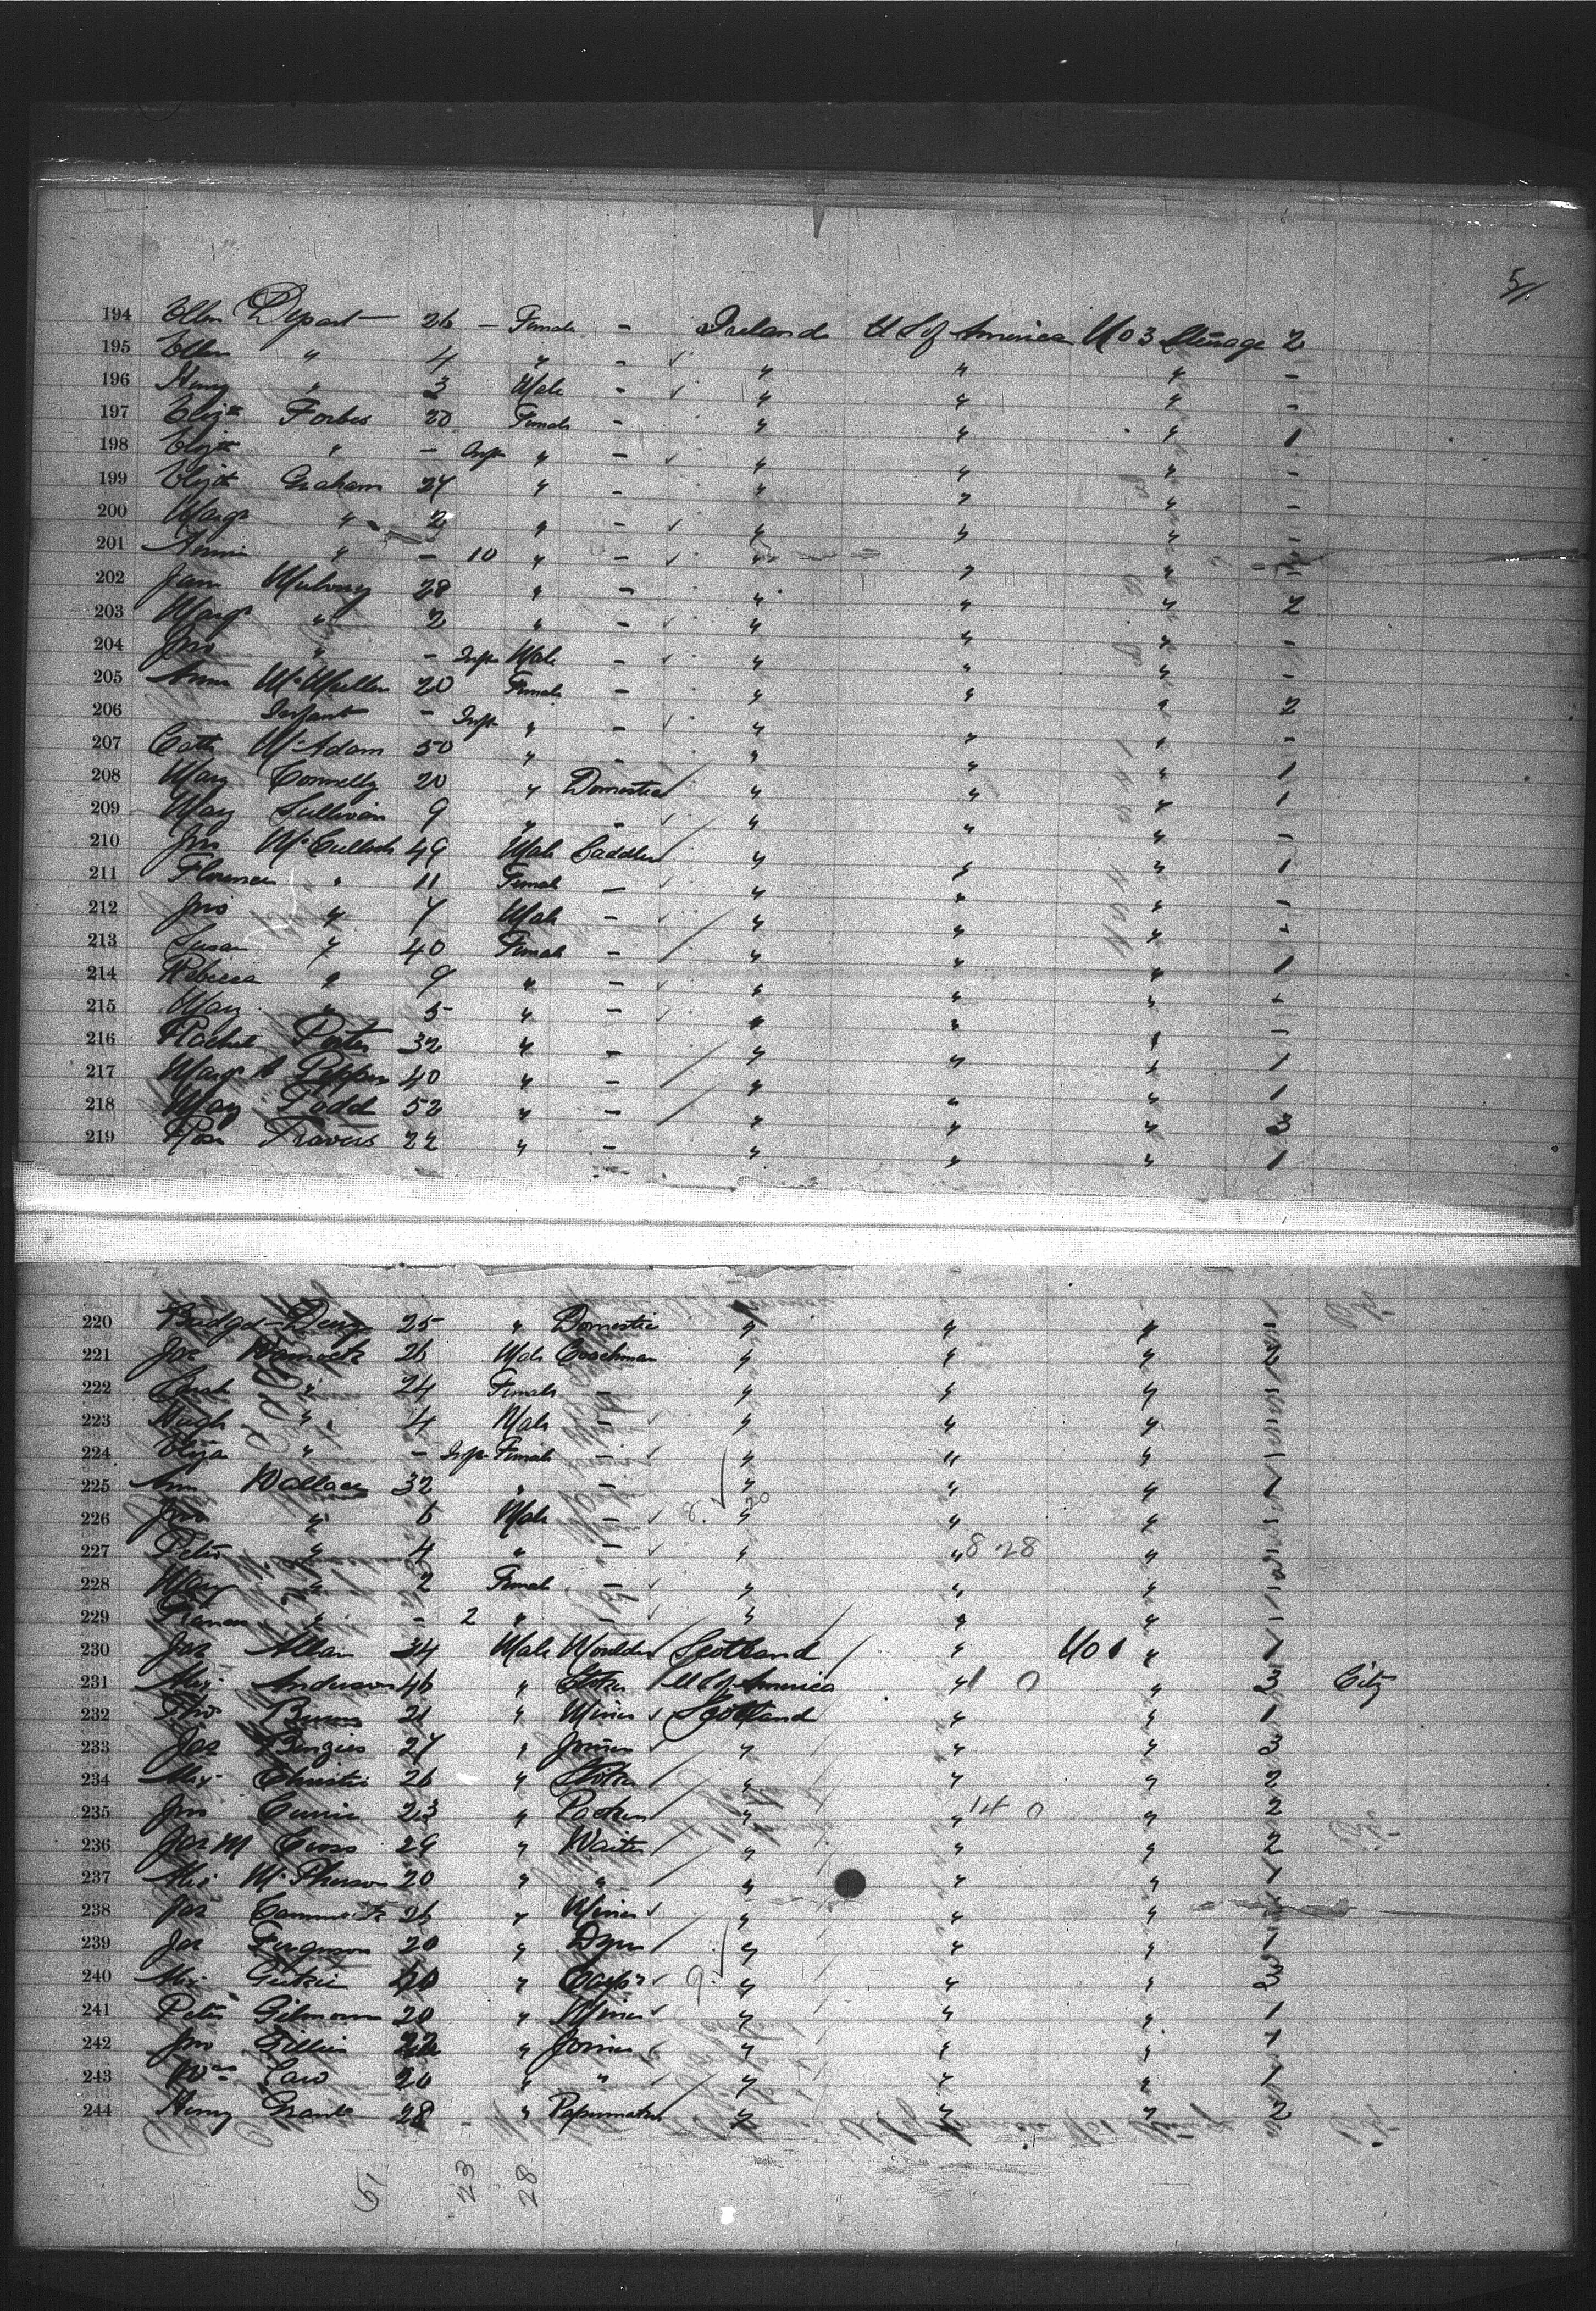 5/
194 Ellen Depart 26 - Female - Ireland U S of America No 3 Steerage 2
195 Ellen " 4 " - ✓ " " " -
196 Henry " 3 Male - ✓ " " " -
197 Elizth Forbes 20 Female - " " " 1
198 Elizth " - Inft " - ✓ " " " -
199 Elizth Graham 24 " - " " " -
200 Margt " 2 " - ✓ " " " -
201 Annie " - 10 " - ✓ " " "
202 Jane Mulvony 28 " - " " " 2
203 Margt " 2 " - ✓ " " " -
204 Jno " - Inft Male - ✓ " " " -
205 Anne McMullen 20 Female - " " " 2
206 Infant - Inft " - ✓ " " " -
207 Cath McAdam 50 " - " " " 1
208 Mary Connelly 20 " Domestic " " " 1
209 Mary Sullivan 9 " - ✓ " " " -
210 Jno McCulloch 49 Male Saddler " " " 1
211 Florence " 11 Female - ✓ " " " -
212 Jno " 7 Male - ✓ " " " -
213 Susan " 40 Female - " " " 1
214 Rebecca " 9 " - ✓ " " " -
215 Mary " 5 " - ✓ " " " -
216 Rachel Porter 32 " - " " " 1
217 Margt 40 " - " " " 1
218 May Todd 52 " - " " " 3
219 Rose Travers 22 " - " " " 1
220 25 " Domestic " " "
221 26 Male Coachman " " " 2
222 Sarah " 24 Female - " " "
223 Hugh " 4 Male - ✓ " " "
224 Eliza " - Inft Female - ✓ " " "
225 Ann Wallace 32 " - " " " 1
226 Jno " 6 Male - ✓ 8. 20 " " "
227 Peter " 4 " - ✓ " " 8 28 "
228 Mary " 2 Female - ✓ " " "
229 " - 2 " - ✓ " " "
230 Jas Allan 34 Male Moulder Scotland " No 1 " 1
231 Alex Anderson 46 " U S of America " 1 0 " 3 City
232 Thos Burns 21 " Miner ✓ Scotland " " 1
233 Jas Benzies 27 " Joiner ✓ " " " 3
234 Alex Christie 26 " " " " 2
235 Jno Currie 23 " " " 14 0 " 2
236 Jas M Cross 29 " Waiter " " " 2
237 Alex McPherson 20 " " " " " 1
238 Jas 26 " Miner ✓ " " "
239 Jas Ferguson 20 " Dyer " " " 1
240 Alex Gutrie " Carpr ✓ 9. " " " 3
241 Peter Gilmour 20 " Miner ✓ " " " 1
242 Jno Gillies 22 " Joiner ✓ " " " 1
243 Wm Law 20 " " ✓ " " " 1
244 Henry Grant 28 - " " " " 2
51 23 28